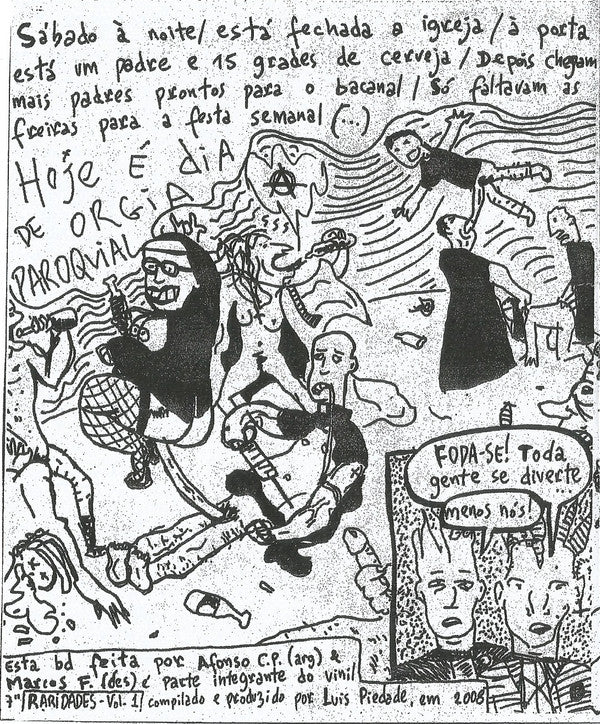 Sábado à noite/ está fechada a igreja/ à porta
está um padre e 15 grades de cerveja/ Depois chegam
mais padres prontos para o bacanal/ Só faltavam as
freiras para a festa semanal (...)
Hoje É dIA
DE ORGIA
PAROQUIAL
FODA-SE! Toda
gente se diverte
menos nós!
Esta bd feita por Afonso C.P. (arg) &
Marcos F. (des) é parte integrante do vinil
7"/RARIDADES-Vol. 1/ compilado e produzido por Luis Piedade, em 2008